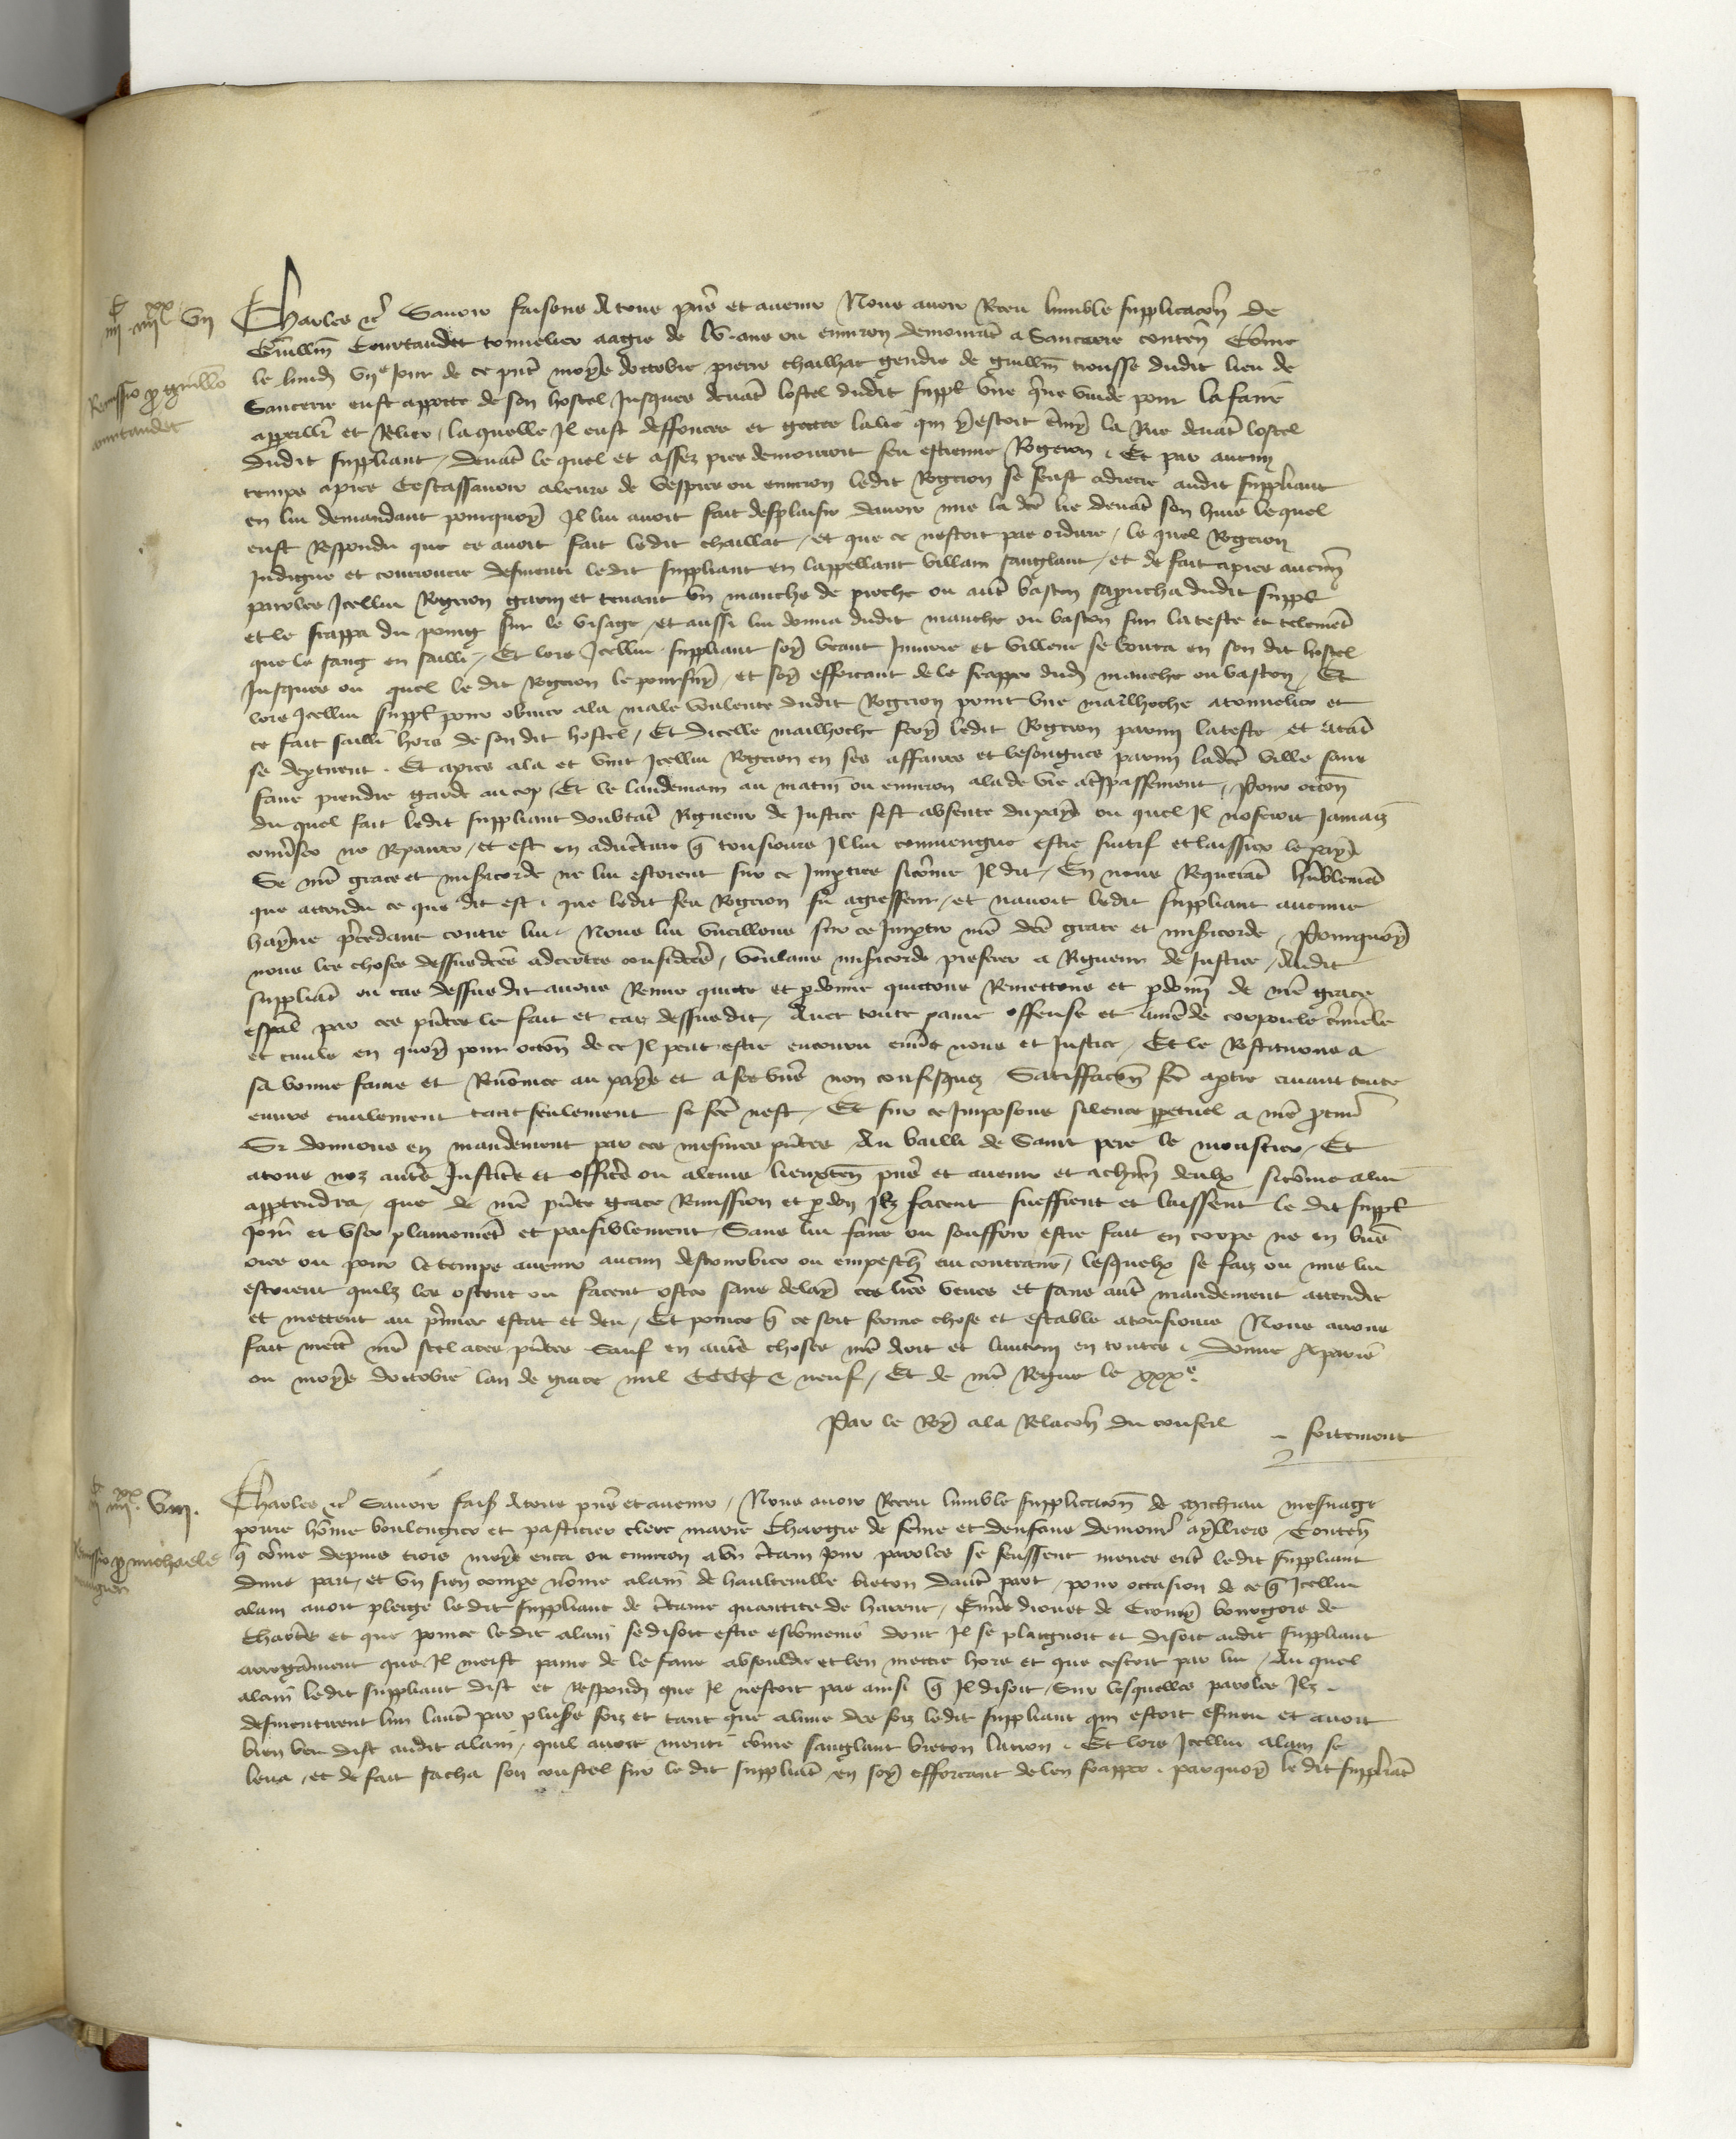 iiii iiii xx vii
Charles etc̃ Savoir faisons Atous pñs et avenir Nous avoir Receu lumble supplicacoñ de
Guillm̃ Courtaudet tonnelier aagie de lv. ans ou environ demourãt a Sancerre conteñ Cõme
le lundj vije Jour de ce pñt moys doctobre pierre chailhat gendre de guillm̃ trousse dudit lieu de
Remissio ꝓ guillo
courtaudet
Sancerre eust apporte de son hostel Jusques devãt lostel dudit suppl̃ vne qũe vuide pour la faire
apparillĩ et Relier, laquelle Il eust deffoncee et gettee la lie qui y estoit em̃y la Rue devãt lostel
dudit suppliant, devãt le quel et assez pres demouroit feu estienne Rogeron. Et par aucun
temps apres Cestassavoir aleure de vespres ou environ ledit Rogeron se feust adrecie audit suppliant
en lui demandant pourquoy Il lui avoit fait desplaisir davoir mis la dce lie devãt son huis lequel
eust Respondu que ce avoit fait ledit chaillat, et que ce nestoit pas ordure, le quel Rogeron
Indigne et courroucie desmenti ledit suppliant en lappellant villain sanglant, et de fait apres aucun̄s
paroles Icellui Rogeron garny et tenant vn manche de pioche ou autr̃ baston saproucha dudit suppl̃
et le frappa du poing sur le visage, et aussi lui donna dudit manche ou baston sur la teste et telemẽt
que le sang en sailli, Et lors Icellui suppliant soy veant Iniurie et villene se bouta en son dit hostel
Jusques ou quel le dit Rogeron le poursuy, et soy efforcant de le frapper dudj manche ou baston, Et
lors Icellui suppl̃ pour obvier ala male voulente dudit Rogeron print vne mailhoche atonnelier et
ce fait sailli hors de son dit hostel, Et dicelle mailhoche fery ledit Rogeron parmy la teste et atãt
se departirent. Et apres ala et vint Icellui Rogeron en ses affaires et besongnes parmy ladce ville sans
faire prendre garde au cop, Et le landemain au matin ou environ ala de vie atr̃spassement, Pour occõn
du quel fait ledit suppliant doubtãt Rigueur de Justice sest absente du pays ou quel Il noseroit Jamais
convs̃er ne Repairer, et est en adventure q̃ tousiours Il lui conviengne estre fuitif et laissier le pays
Se nr̃e grace et misericorde ne lui estoient sur ce Imparties sicõme Il dit, En nous Requerãt hũblemẽt
que attendu ce que dit est, que ledit feu Rogeron fu agresseur, et navoit ledit suppliant aucune
hayne p̃cedant contre lui, Nous lui vueillons sur ce Impartir nr̃e dce grace et misericorde, Pourquoy
nous les choses dessusdces adcertes considerees, voulans misericorde preferer a Rigueur de Justice, Audit
suppliãt ou cas dessus dit avons Remis quicte et ꝑdonne quictons Remettons et ꝑdonn̄s de nr̃e grace
esp̃al par ces pñtes le fait et cas dessus dit, Avec toute paine offense et amẽde corporele crĩmele
et civile en quoy pour occõn de ce Il peut estre encouru envs̃ nous et Justice, Et le Restituons a
sa bonne fame et Renõmee au pays et a ses bñs non confisquez, Satisffacoñ fc̃e a partie avant toute
euvre civilement tant seulement se fc̃e nest, Et sur ce Imposons silence ꝑpetuel a nr̃e ꝓcur̃
Si donnons en mandement par ces mesmes pñtes Au bailli de Saint pere le moustier, Et
atous noz autr̃s Justic̃rs et officic̃rs ou aleurs lieuxten̄ pñs et avenir et achun̄ deulx sicõme alui
appartendra, que de nr̃e pñte grace Remission et ꝑdon Ilz facent sueffrent et laissent le dit suppl̃
Joir̃ et vser plainemẽt et paisiblement, Sans lui faire ou souffrir estre fait en corps ne en biẽs
ores ou pour le temps avenir aucun destourbier ou empeschc̃ au contraire, lesquelx se faiz ou mis lui
estoient quilz les ostent ou facent oster sans delay ces lr̃es veues et sans autr̃ mandement attendre
et mettent au p̃mier estat et deu, Et pource q̃ ce soit ferme chose et estable atousiours Nous avons
fait mettr̃ nr̃e seel aces pñtes Sauf en autr̃s choses nr̃e droit et lautrui en toutes. Donne A paris
ou moys doctobre lan de grace mil CCCC e neuf, Et de nr̃e Regne le xxxe.
Par le Roy ala Relacoñ du conseil fortement
iiii xx viii.
Charles etc̃ Savoir fais̃ Atous pñs et avenir, Nous avoir Receu lumble supplicacoñ de michiau mesnage
povre hõme boulengier et pasticier clerc marie Chargie de fẽme et denfans demour̃ a yliers, Conteñ
Remissio ꝓ michaele
mesnagier
q̃ cõme depuis trois moys enca ou environ a vn cr̃tain Jour paroles se feussent meues entr̃ ledit suppliant
dune part, et vn sien compe nõme alain de haulteville breton dautr̃ part, pour occasion de ce q̃ Icellui
alain avoit pleige ledit suppliant de cr̃taine quantite de harenc, Envs̃ drouet de bourgois de
Chartres et que pource ledit alain se disoit estre escõmenie dont Il se plaignoit et disoit audit suppliant
arrogãment que Il meist paine de le faire absouldre et len mettre hors et que cestoit par lui, Au quel
alain ledit suppliant dist et Respondj que Il nestoit pas ainsi q̃ Il disoit, Sur lesquelles paroles Ilz
desmentirent lun lautr̃ par plus̃s foiz et tant que alune des foiz ledit suppliant qui estoit esmeu et avoit
bien beu dist audit alain, quil avoit menti cõme sanglant breton larron. Et lors Icellui alain se
leva, et de fait sacha son coustel sur le dit suppliãt en soy efforcant de len frapper. parquoy le dit suppliãt